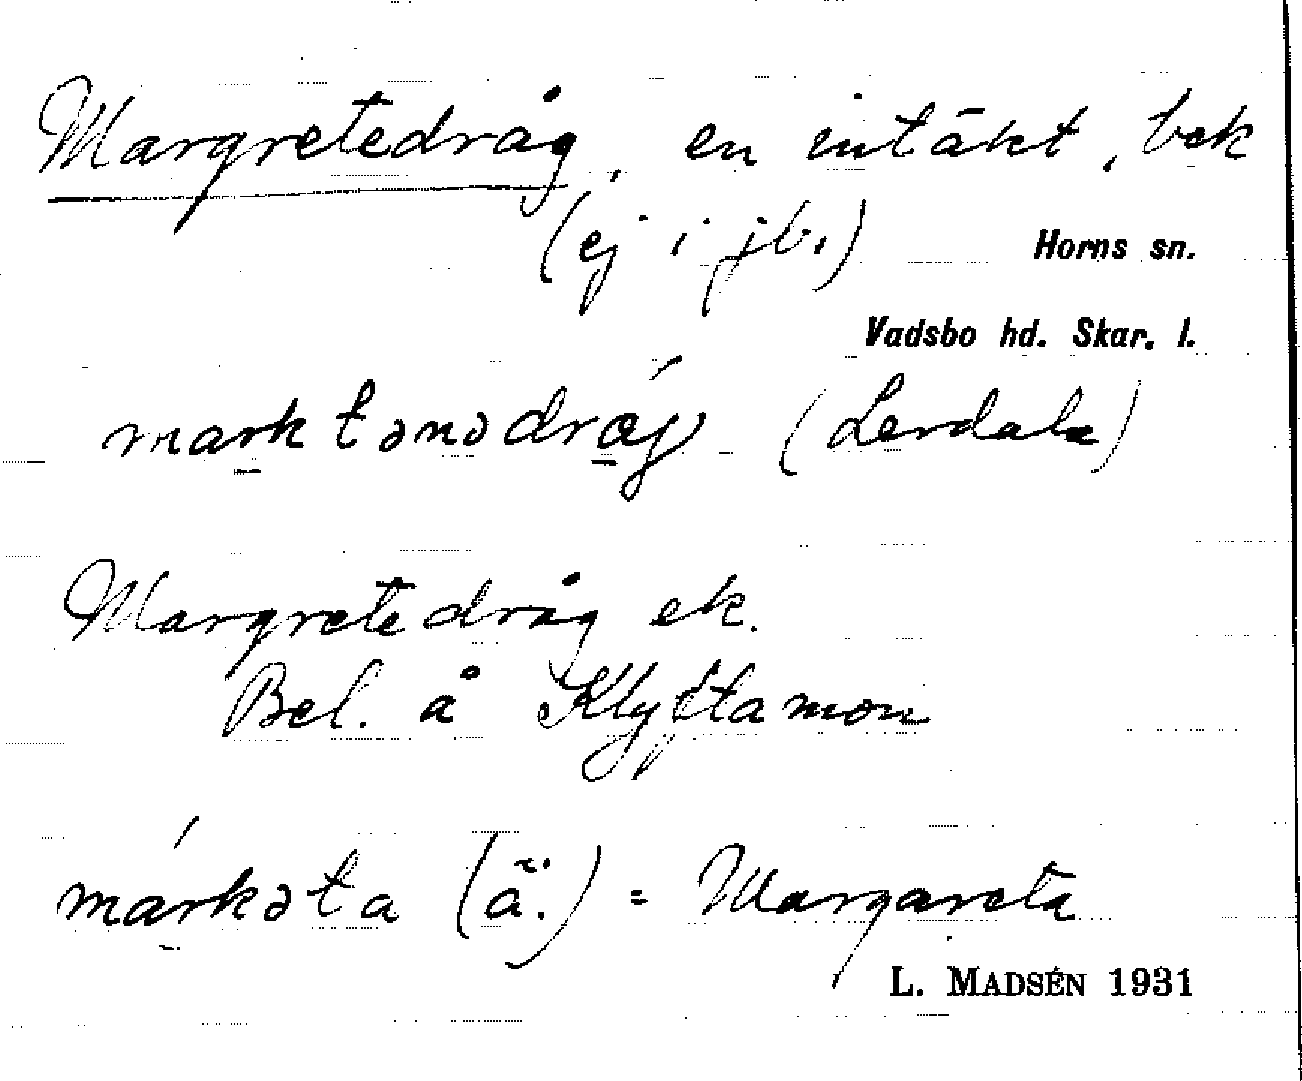 Margretedråg, en intäkt, bek
(ej i jb.)
Horns sn.
Vadsbo hd. Skar. l.
marktənədrág (Lerdala)
Margretedråg ek.
Bel. å Klyftamon
márkəta (ä.) = Margareta
L. MADSÉN 1931